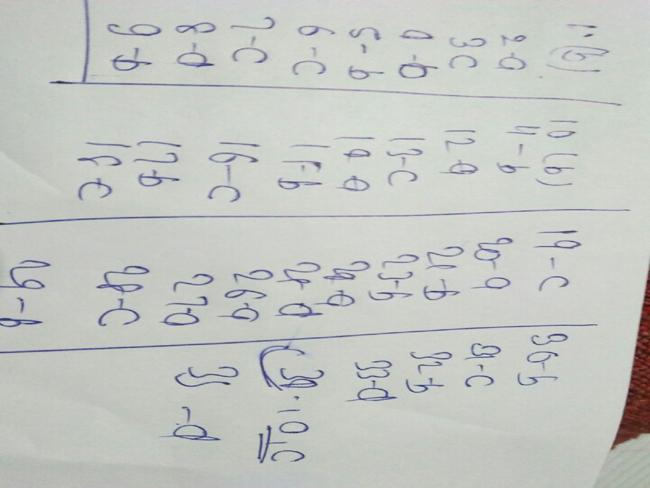 1.(b)
2-a
3c
4-b
5-b
6-c
7-c
8-d
9-b
10(b)
11-b
12-a
13-c
14-a
15-b
16-c
17-b
18-c
19-c
20-a
21-b
23-b
24-a
25-d
26-a
27-a
28-c
29-b
30-b
31-c
32-b
33-d
34.10.c
35-d